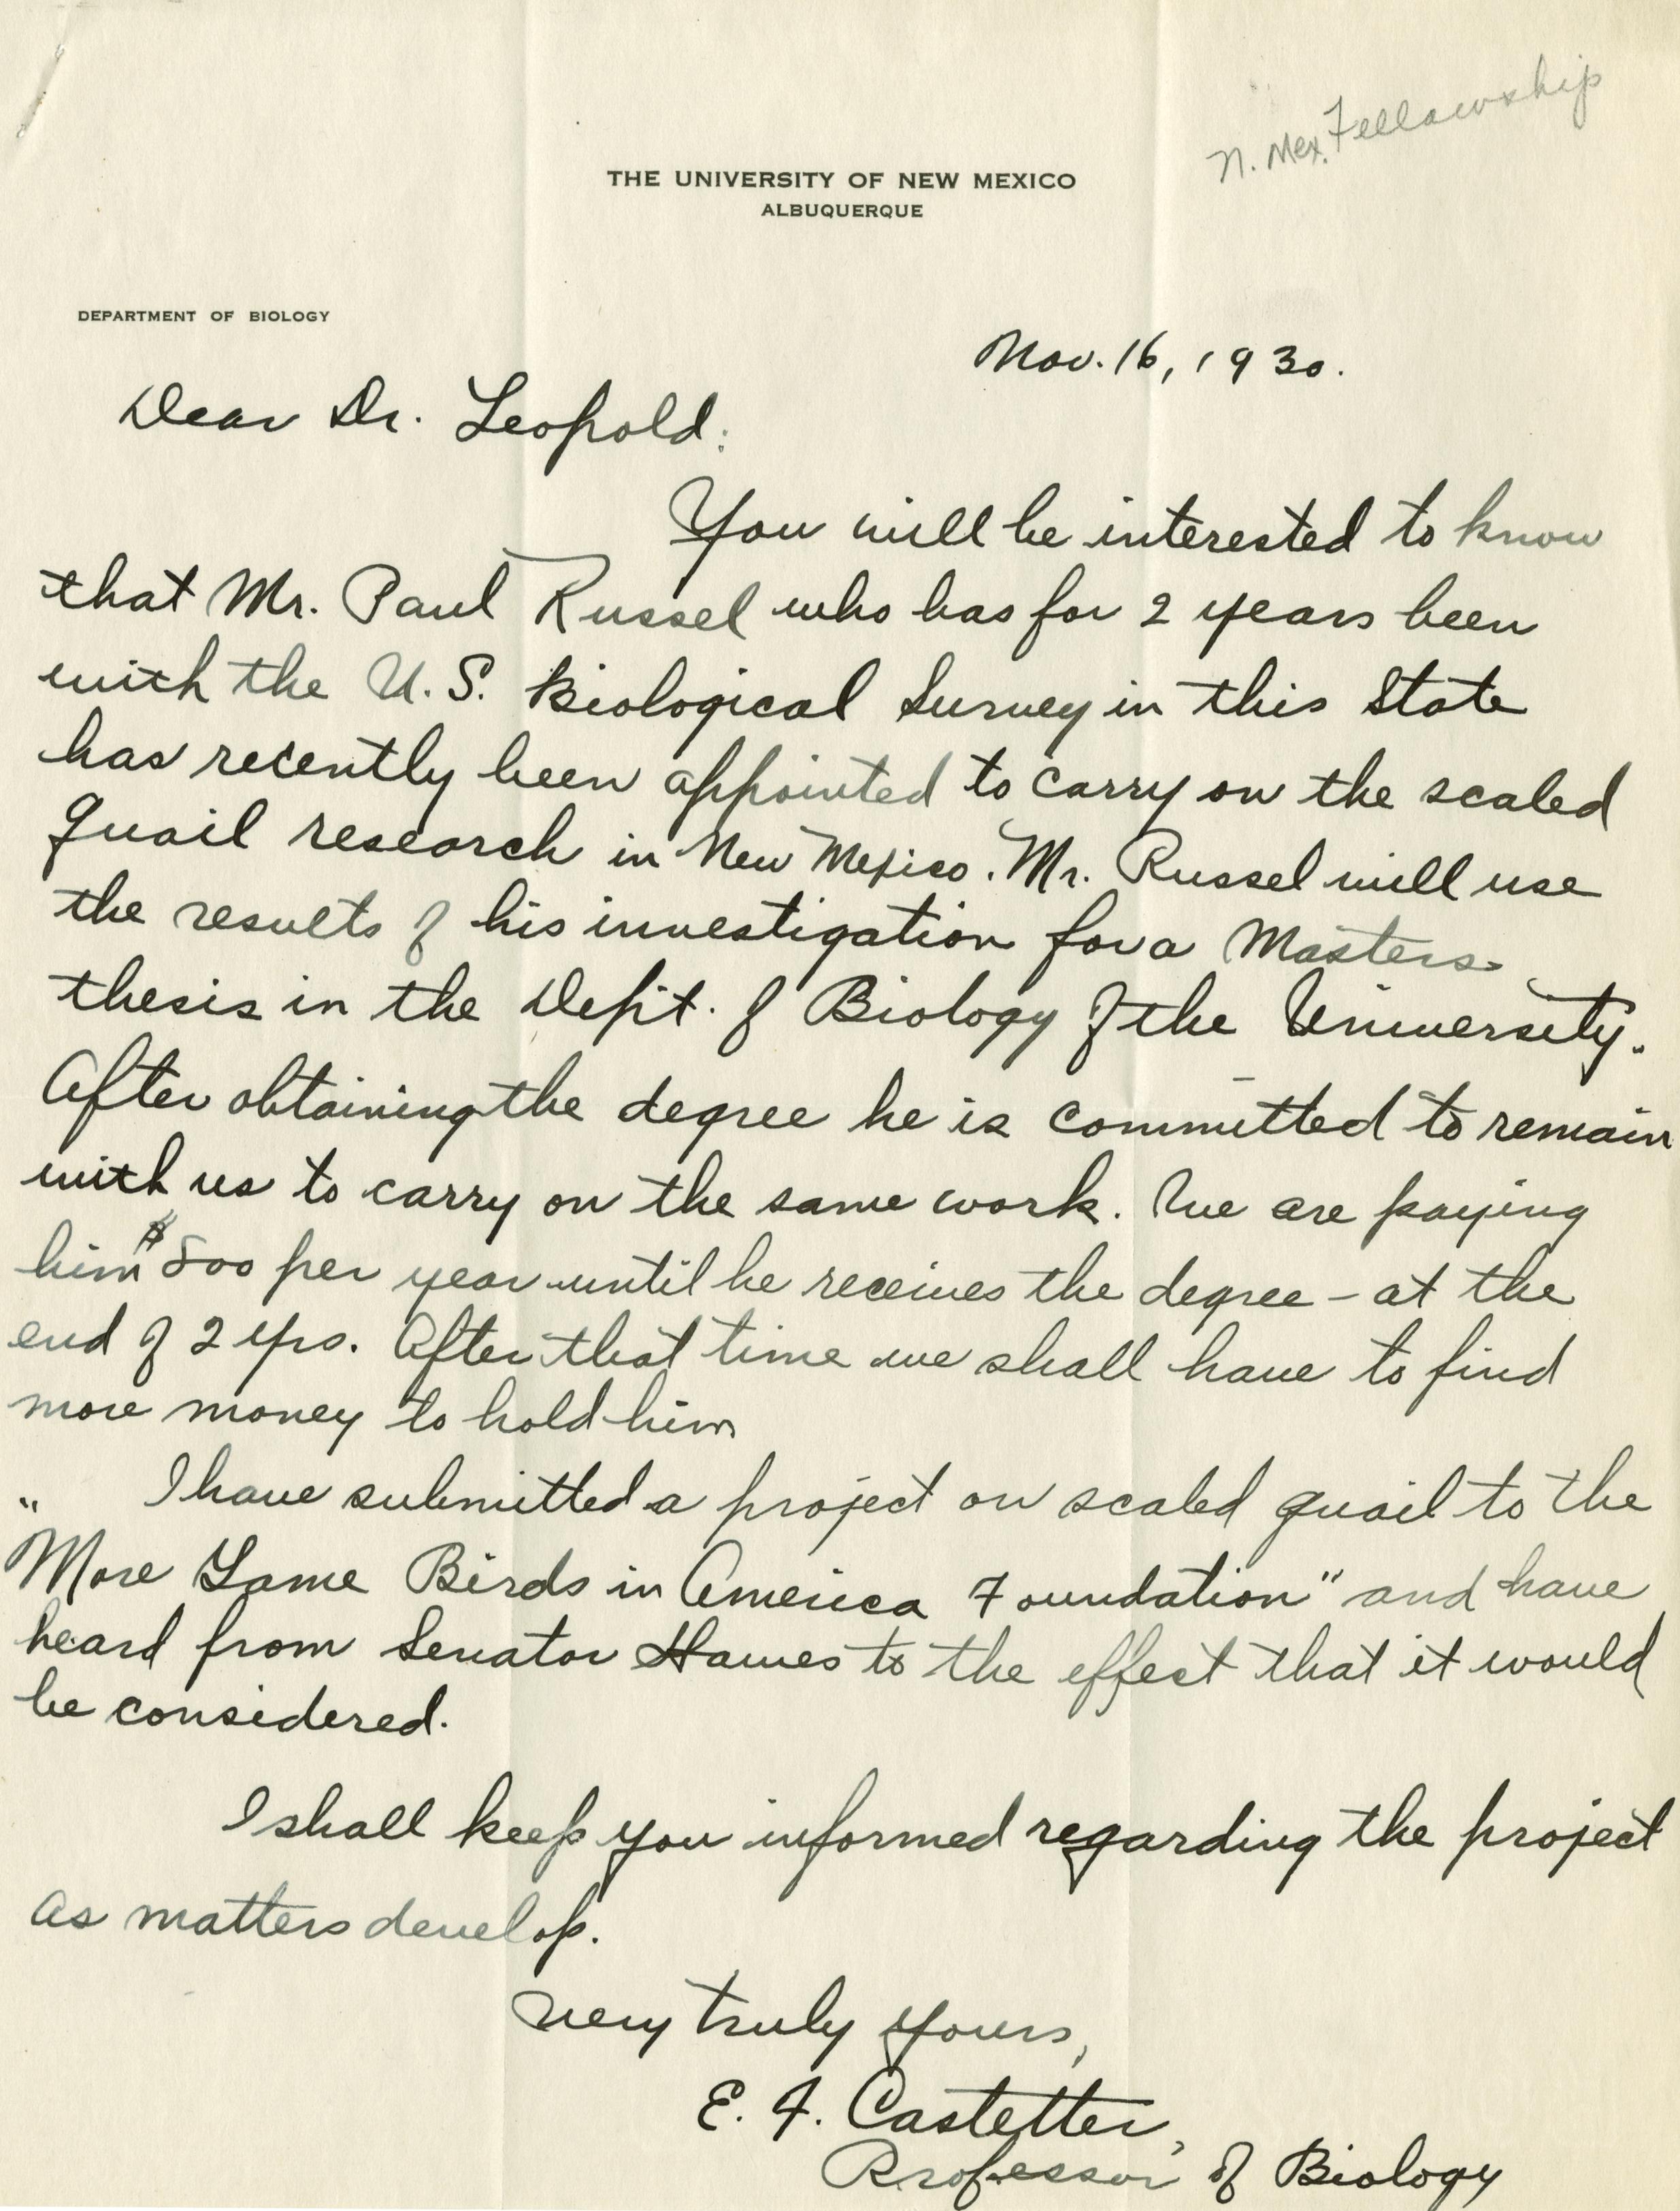 N. Mex. Fellowship
THE UNIVERSITY OF NEW MEXICO
ALBUQUERQUE
DEPARTMENT OF BIOLOGY
Nov. 16, 1930.
Dear Dr. Leopold:
You will be interested to know
that Mr. Paul Russel who has for 2 years been
with the U.S. Biological Survey in this State
has recently been appointed to carry on the scaled
quail research in New Mexico. Mr. Russel will use
the results of his investigation for a Masters
thesis in the Dept. of Biology of the University.
After obtaining the degree he is committed to remain
with us to carry on the same work. We are paying
him $800 per year until he receives the degree – at the
end of 2 yrs. After that time we shall have to find
more money to hold him
I have submitted a project on scaled quail to the
"More Game Birds in America Foundation" and have
heard from Senator Hawes to the effect that it would
be considered.
I shall keep you informed regarding the project
as matters develop.
Very truly yours,
E. F. Castetter,
Professor of Biology